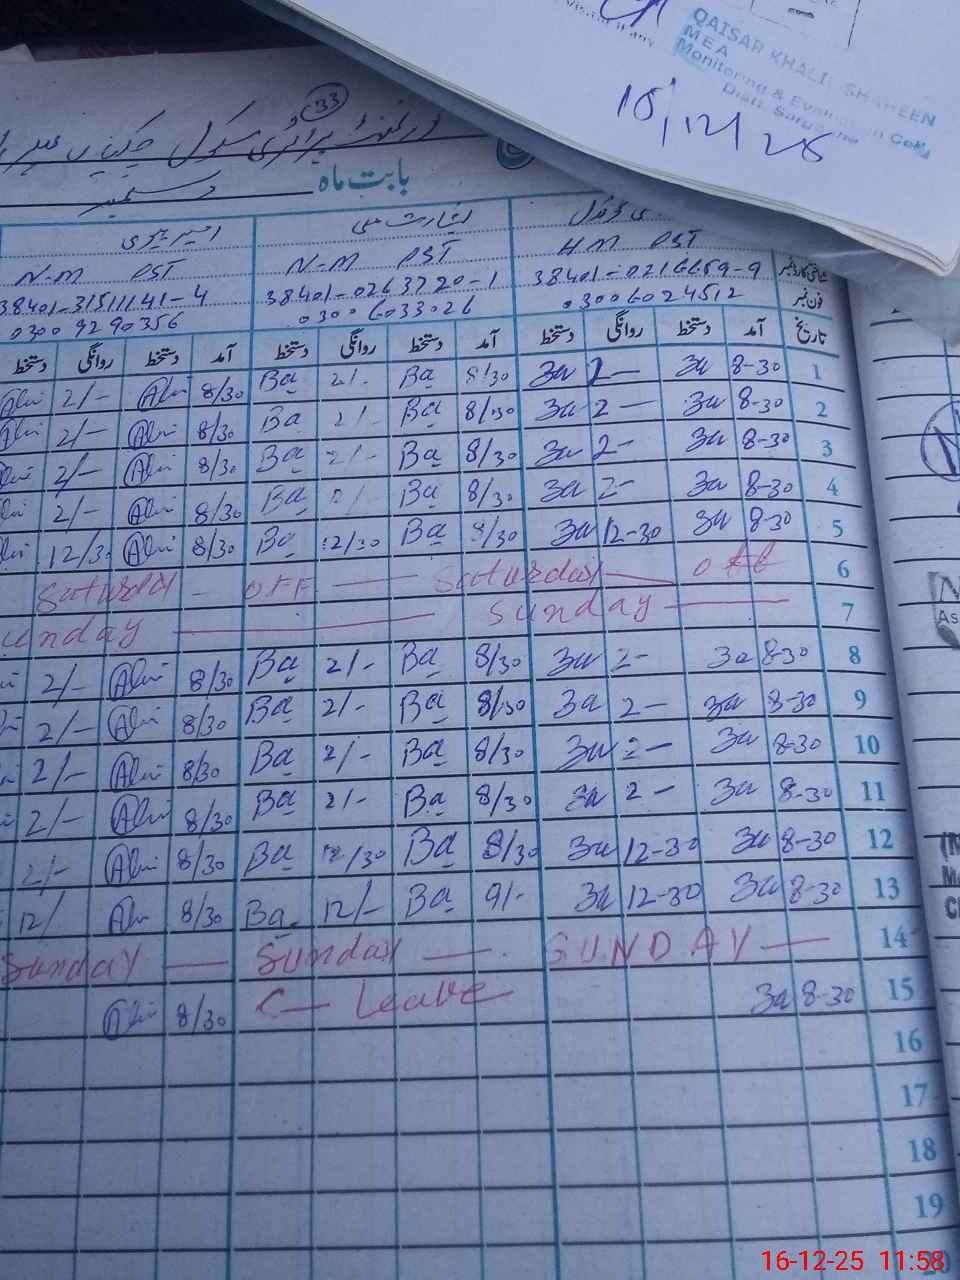 QAISAR KHALIL SHAHEEN
MEA
Monitoring & Evaluation Cell
Distt. Sargodha
15/12/25
33
گورنمنٹ پرائمری سکول
بابت ماہ دسمبر
N-M PST N-M PST H M PST
38401-31511141-4 38401-0263720-1 38401-0216659-9 شناختی کارڈ نمبر
0300 9290356 0300 6033026 0300 6024512 فون نمبر
دستخط روانگی دستخط آمد دستخط روانگی دستخط آمد دستخط روانگی دستخط آمد تاریخ
2/- 8/30 Ba 2/- Ba 8/30 3a 2- 3a 8-30 1
2/- 8/30 Ba 2/- Ba 8/30 3a 2- 3a 8-30 2
2/- 8/30 Ba 2/- Ba 8/30 3a 2- 3a 8-30 3
2/- 8/30 Ba 2/- Ba 8/30 3a 2- 3a 8-30 4
12/30 8/30 Ba 12/30 Ba 8/30 3a 12-30 3a 8-30 5
Saturday - OFF - Saturday - off 6
unday - Sunday - 7
2/- 8/30 Ba 2/- Ba 8/30 3a 2- 3a 8-30 8
2/- 8/30 Ba 2/- Ba 8/30 3a 2- 3a 8-30 9
2/- 8/30 Ba 2/- Ba 8/30 3a 2- 3a 8-30 10
2/- 8/30 Ba 2/- Ba 8/30 3a 2- 3a 8-30 11
2/- 8/30 Ba 12/30 Ba 8/30 3a 12-30 3a 8-30 12
12/ 8/30 Ba 12/- Ba 9/- 3a 12-30 3a 8-30 13
Sunday - Sunday - SUNDAY - 14
8/30 C- Leave 3a 8-30 15
16
17
18
19
20
16-12-25 11:58